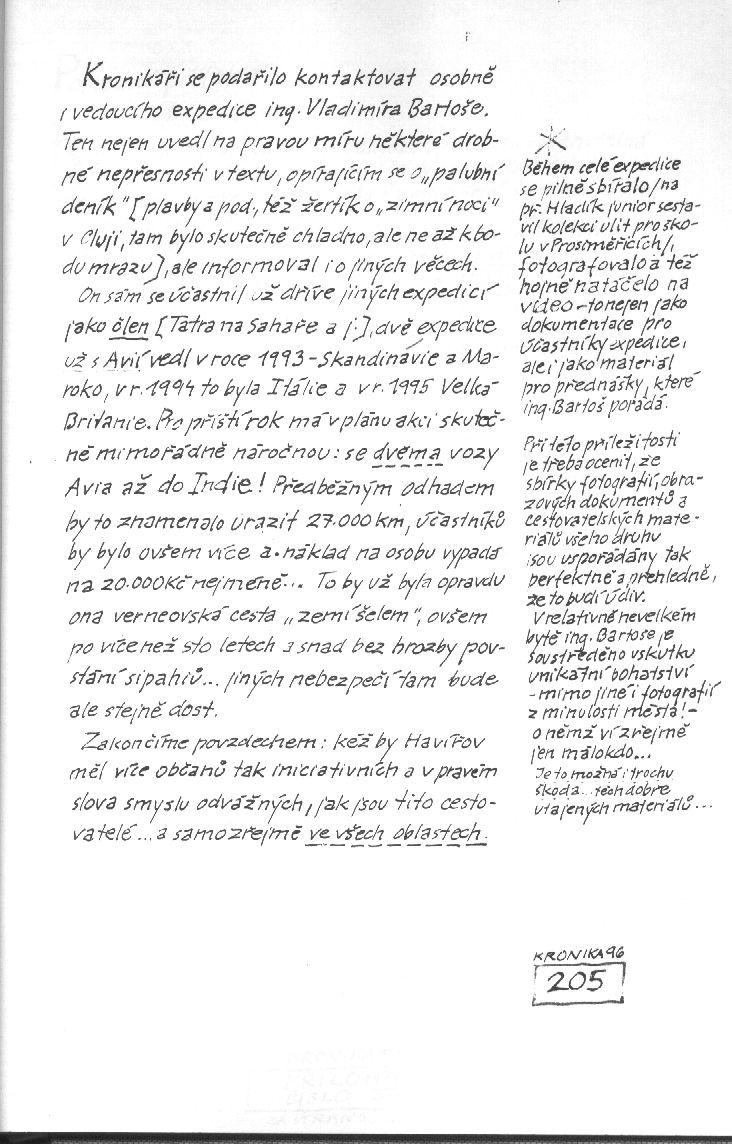 Kronikáři se podařilo kontaktovat osobně
i vedoucího expedice ing. Vladimíra Bartoše.
Ten nejen uvedl na pravou míru některé drob-
né nepřesnosti v textu, opírajícím se o „palubní
deník" [plavby a pod., též žertík o „zimní noci"
v Cluji, tam bylo skutečně chladno, ale ne až k bo-
du mrazu], ale informoval i o jiných věcech.
On sám se účastnil už dříve jiných expedicí
jako člen [Tatra na Sahaře a j.], dvě expedice
už s Avií vedl v roce 1993 - Skandinávie a Ma-
roko, v r. 1994 to byla Itálie a v r. 1995 Velká
Britanie. Pro příští rok má v plánu akci skuteč-
ně mimořádně náročnou: se dvěma vozy
Avia až do Indie! Předběžným odhadem
by to znamenalo urazit 27.000 km, účastníků
by bylo ovšem více a náklad na osobu vypadá
na 20.000 Kč nejméně... To by už byla opravdu
ona verneovská cesta „zemí šelem", ovšem
po více než sto letech a snad bez hrozby pov-
stání sipahiů... jiných nebezpečí tam bude
ale stejně dost.
Zakončíme povzdechem: kéž by Havířov
měl více občanů tak iniciativních a v pravém
slova smyslu odvážných, jak jsou tito cesto-
vatelé... a samozřejmě ve všech oblastech.
*
Během celé expedice
se pilně sbíralo /na
př. Hladík junior sesta-
vil kolekci ulit pro ško-
lu v Prostměřicích/,
fotografovalo a též
hojně natáčelo na
video - to nejen jako
dokumentace pro
účastníky expedice,
ale i jako materiál
pro přednášky, které
ing. Bartoš pořádá.
Při této příležitosti
je třeba ocenit, že
sbírky fotografií, obra-
zových dokumentů a
cestovatelských mate-
riálů všeho druhu
jsou uspořádány tak
perfektně a přehledně,
že to budí údiv.
V relativně nevelkém
bytě ing. Bartoše je
soustředěno vskutku
unikátní bohatství
- mimo jiné i fotografií
z minulosti města! -
o němž ví zřejmě
jen málokdo...
Je to možná i trochu
škoda... těch dobře
utajených materiálů...
KRONIKA 96
205